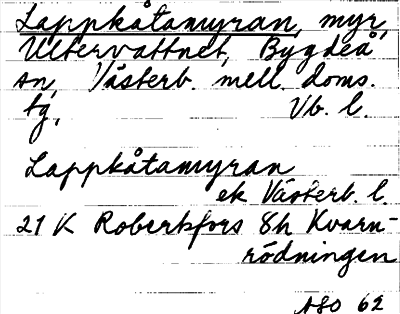 Lappkåtamyran, myr,
Uttervattnet, Bygdeå
sn, Västerb. mell. doms.
tg, Vb. l.
Lappkåtamyran
ek Västerb. l.
21 K Robertsfors 8h Kvarn-
rödningen
ASO 62